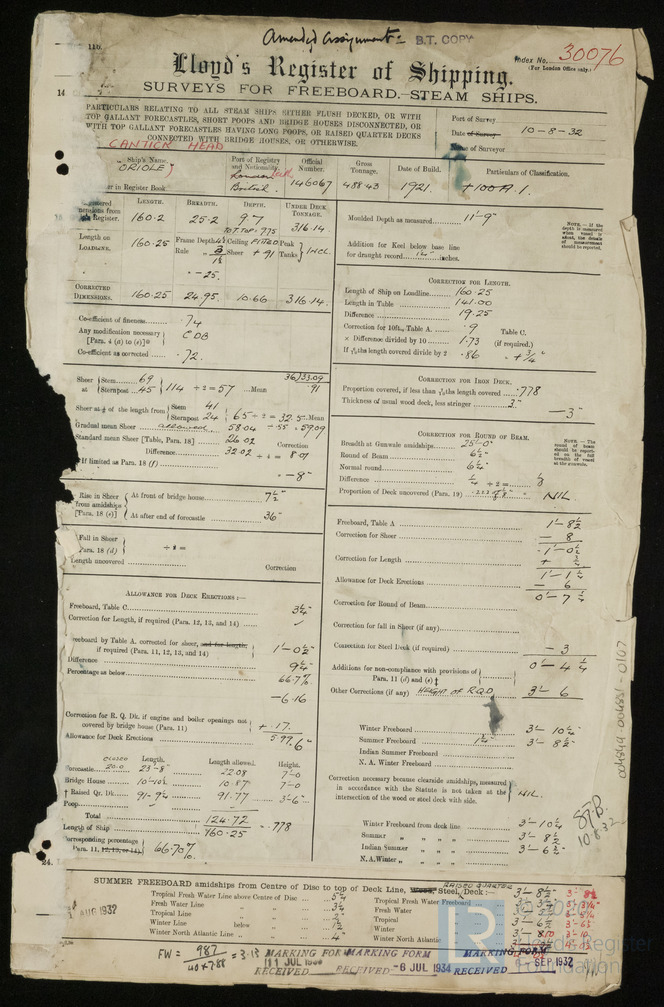 Amended Assignment B.T. COPY
Index No. 30076
(For London Office only.)
Lloyd's Register of Shipping.
SURVEYS FOR FREEBOARD.—STEAM SHIPS.
PARTICULARS RELATING TO ALL STEAM SHIPS EITHER FLUSH DECKED, OR WITH
TOP GALLANT FORECASTLES, SHORT POOPS AND BRIDGE HOUSES DISCONNECTED, OR
WITH TOP GALLANT FORECASTLES HAVING LONG POOPS, OR RAISED QUARTER DECKS
CONNECTED WITH BRIDGE HOUSES, OR OTHERWISE.
Port of Survey
Date of Survey 10-8-32
Name of Surveyor
CANTICK HEAD
Ship's Name. Port of Registry and Nationality. Official Number. Gross Tonnage. Date of Build. Particulars of Classification.
"ORIOLE" London British 146067 488.43 1921. +100A.1.
in Register Book
LENGTH. BREADTH. DEPTH. UNDER DECK TONNAGE.
160.2 25.2 9.7 316.14
Length on LOADLINE. 160.25 Frame Depth Ceiling FITTED Peak Tanks INCL.
Rule Sheer + .91
- .25
CORRECTED DIMENSIONS. 160.25 24.95 10.66 316.14
Co-efficient of fineness .74
Any modification necessary [Para. 4 (d) to (e)]* CDB
Co-efficient as corrected .72
Sheer at Stem 69
Sternpost 45 114 ÷ 2 = 57 Mean
36)33.09
.91
Sheer at 1/8 of the length from Stem 41
Sternpost 24 65 ÷ 2 = 32.5 Mean
Gradual mean Sheer allowed 58.04 ÷ .55 = 59.09
Standard mean Sheer [Table, Para. 18] 26.02 Correction
Difference 32.02 ÷ 4 = 8.01
If limited as Para. 18 (f) -8"
Rise in Sheer from amidships [Para. 18 (e)] At front of bridge house 7½"
At after end of forecastle 36"
Fall in Sheer Para. 18 (d) ÷ 2 =
Length uncovered Correction
ALLOWANCE FOR DECK ERECTIONS:—
Freeboard, Table C
Correction for Length, if required (Para. 12, 13, and 14)
Freeboard by Table A. corrected for sheer, and for length, if required (Para. 11, 12, 13, and 14) 1'-0½"
Difference 9¼"
Percentage as below 66.7%
-6.16
Correction for R. Q. Dk. if engine and boiler openings not covered by bridge house (Para. 11) + .17
Allowance for Deck Erections 5.99 6"
Length. Length allowed. Height.
Forecastle closed 23'-8" 22.08 7'-0
Bridge House 10'-10½ 10.87 7'-0
† Raised Qr. Dk. 91'-9¼ 91.77 3'-6"
Poop
Total 124.72
Length of Ship 160.25 = .778
Corresponding percentage Para. 11, 12, 13, or 14 66.70%
Moulded Depth as measured 11'-9"
Addition for Keel below base line for draught record 1¼" inches.
NOTE.—If the depth is measured when vessel is afloat, the details of measurement should be reported.
CORRECTION FOR LENGTH:
Length of Ship on Loadline 160.25
Length in Table 141.00
Difference 19.25
Correction for 10ft., Table A. .9 Table C.
× Difference divided by 10 1.73 (if required.)
If 6/10ths length covered divide by 2 .86 + ¾"
CORRECTION FOR IRON DECK.
Proportion covered, if less than 7/10ths length covered .778
Thickness of usual wood deck, less stringer 3"
-3"
CORRECTION FOR ROUND OF BEAM.
Breadth at Gunwale amidships 25'-0"
Round of Beam 6½"
Normal round 6¼"
Difference ¼ ÷ 2 = ⅛
Proportion of Deck uncovered (Para. 19) .222 NIL.
NOTE.—The round of beam should be reported on the full breadth of vessel at the gunwale.
Freeboard, Table A 1'-8½
Correction for Sheer -8
1'-0½
Correction for Length + ¾
1'-1¼
Allowance for Deck Erections -6
0'-7¼
Correction for Round of Beam
Correction for fall in Sheer (if any)
Correction for Steel Deck (if required) -3
0'-4¼
Additions for non-compliance with provisions of Para. 11 (d) and (e)‡
Other Corrections (if any) HEIGHT OF R.Q.D. 3'-6
Winter Freeboard 3'-10¼
Summer Freeboard 3'-8½
Indian Summer Freeboard
N. A. Winter Freeboard
Correction necessary because clearside amidships, measured in accordance with the Statute is not taken at the intersection of the wood or steel deck with side. NIL.
Winter Freeboard from deck line 3'-10¼
Summer " " " 3'-8½
Indian Summer " " 3'-6¾
N. A. Winter " "
10.8.32
004849-004851-0107
24.
SUMMER FREEBOARD amidships from Centre of Disc to top of Deck Line, Wood, RAISED QUARTER Steel, Deck:— 3'-8½
Tropical Fresh Water Line above Centre of Disc Tropical Fresh Water Freeboard
Fresh Water Line " " Fresh Water
Tropical Line " " Tropical
Winter Line below " Winter
Winter North Atlantic Line " " Winter North Atlantic
AUG 1932
FW = 987 / 40 x 7.88 = 3.13
MARKING FORM RECEIVED 11 JUL
MARKING FORM RECEIVED -6 JUL 1934
MARKING FORM RECEIVED SEP 1932
LR
Lloyd's Register
Foundation